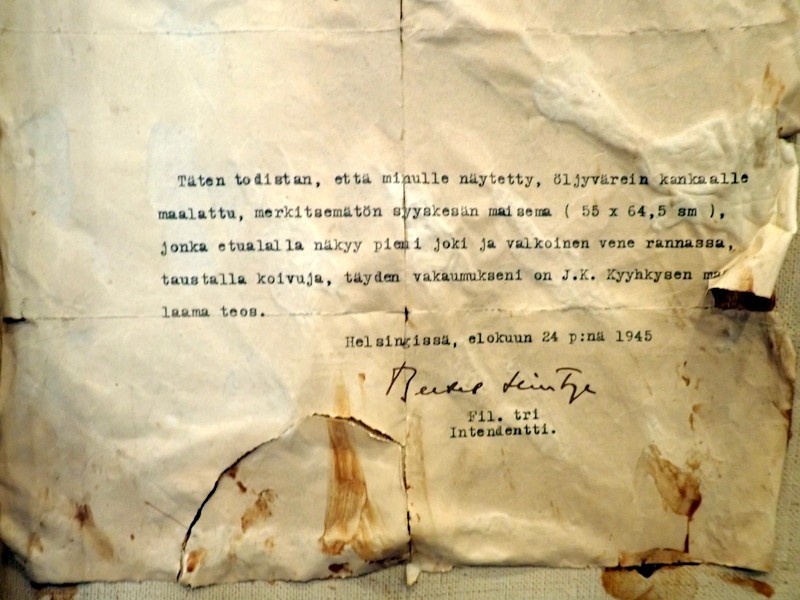 Täten todistan, että minulle näytetty, öljyvärein kankaalle
maalattu, merkitsemätön syyskesän maisema ( 55 x 64,5 sm ),
jonka etualalla näkyy pieni joki ja valkoinen vene rannassa,
taustalla koivuja, täyden vakaumukseni on J.K. Kyyhkysen
laama teos.
Helsingissä, elokuun 24 p:nä 1945
Bertel Hintze
Fil. tri
Intendentti.